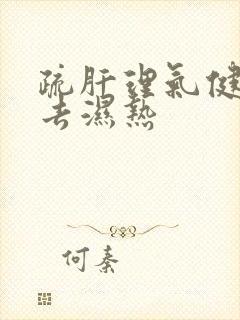 疏肝理氣健
去濕熱
何秦